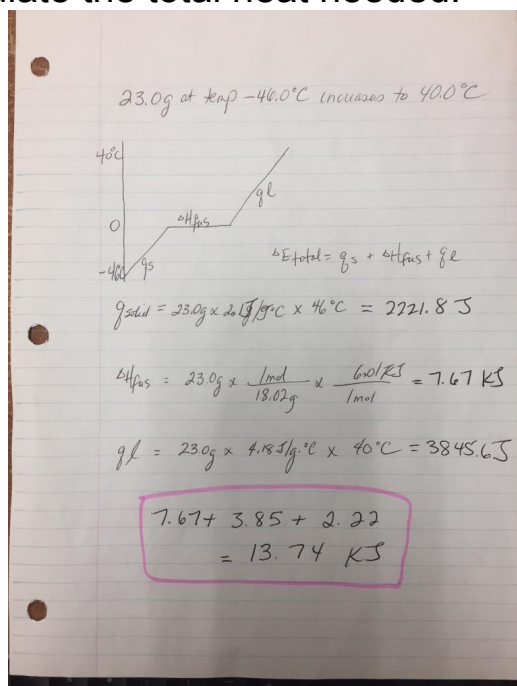 late the total heat needed.
23.0g at temp -46.0°C increases to 40.0°C
40°C
ql
0
ΔHfus
-46°C
qs
ΔEtotal = qs + ΔHfus + ql
qsolid = 23.0g x 2.1J/g°C x 46°C = 2221.8 J
ΔHfus = 23.0g x 1mol/18.02g x 6.01KJ/1mol = 7.67 KJ
ql = 23.0g x 4.18J/g.°C x 40°C = 3845.6J
7.67+ 3.85 + 2.22
= 13.74 KJ